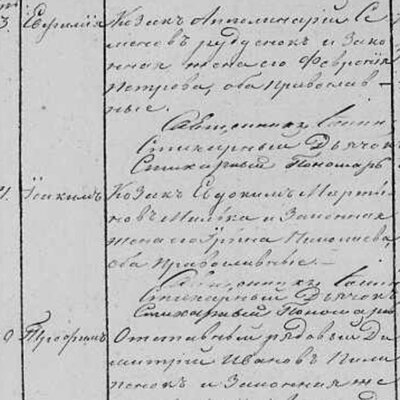 3. Евфимія Козакъ Аполинарій Се-
меновъ рудуенокъ и Зако-
нная жена его Феврокія
Петрова, оба православ-
ные.
Священникъ
Стихарный Дьячокъ
Стихарный Пономарь
Іоакимъ Козакъ Евдокимъ Марти-
новъ и Законная
жена его Ирина Николаева
оба Православные. —
Священникъ
Стихарный Дьячокъ
Стихарный Пономарь
Трофимъ Отставный рядовый Ди-
митрій Ивановъ Пили-
пенокъ и Законная же-